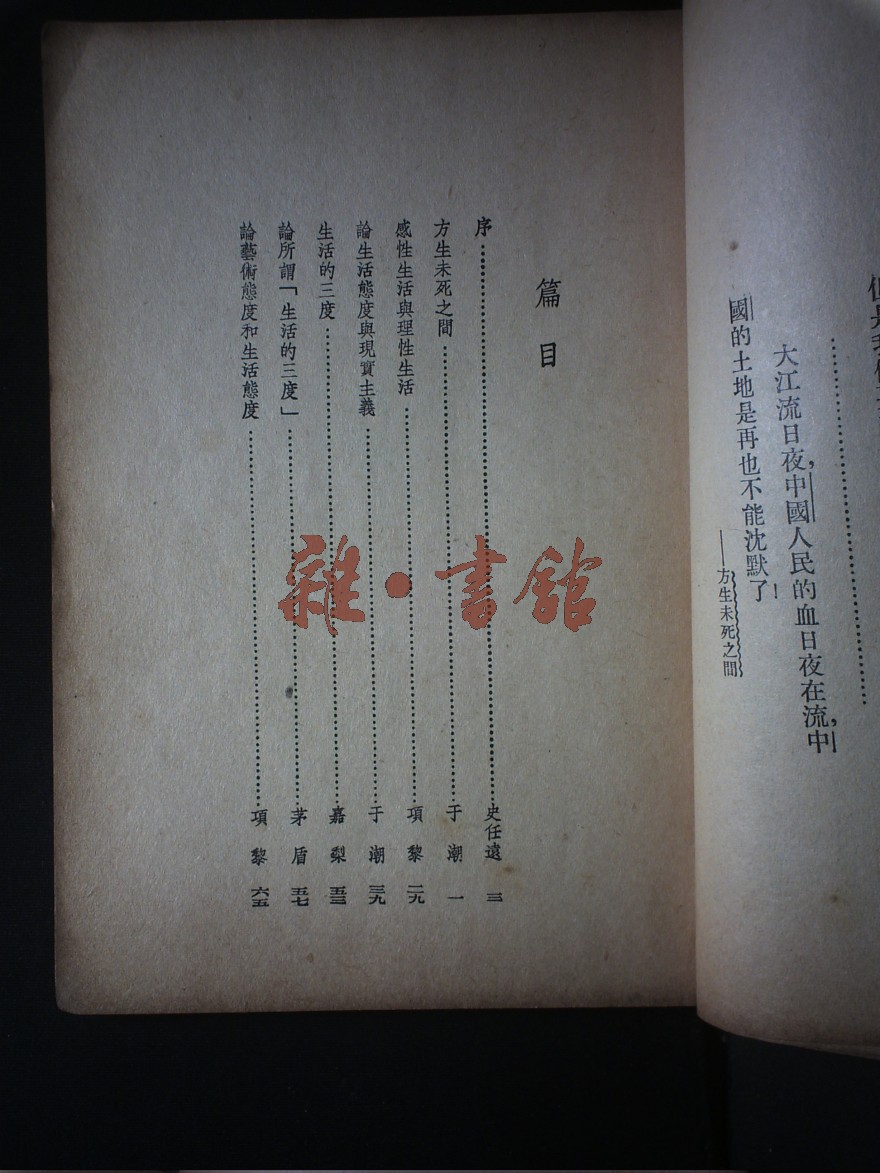 但是我們
大江流日夜，中國人民的血日夜在流，中
國的土地是再也不能沈默了！
——方生未死之間
篇目
序……史任遠 三
方生未死之間……于潮 一
感性生活與理性生活……項黎 二九
論生活態度與現實主義……于潮 三九
生活的三度……嘉梨 五三
論所謂「生活的三度」……茅盾 五七
論藝術態度和生活態度……項黎 六五
雜·書館